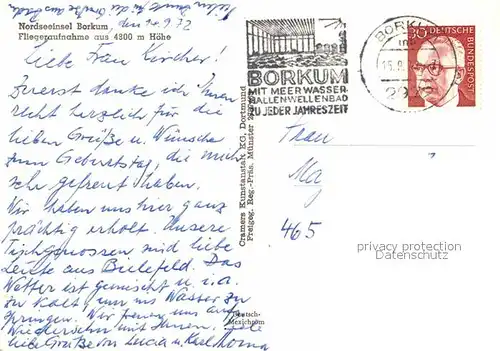 den 14.9.72
Nordseeinsel Borkum
Fliegeraufnahme aus 4800 m Höhe
Liebe Frau Kircher!
Zuerst danke ich Ihnen
recht herzlich für die
lieben Grüße u. Wünsche
zum Geburtstag, die mich
sehr gefreut haben.
Wir haben uns hier ganz
prächtig erholt. Unsere
Tischgenossen sind liebe
Leute aus Bielefeld. Das
Wetter ist gemischt u. i. a.
zu kalt um ins Wasser zu
springen. Wir freuen uns auf
Wiedersehn mit Ihnen.
liebe Grüße von Lucia u. Karl
Cramers Kunstanstalt KG, Dortmund
Freigeg. Reg.-Präs. Münster
BORKUM
MIT MEERWASSER-
HALLENWELLENBAD
ZU JEDER JAHRESZEIT
BORKUM
2972
30 DEUTSCHE
BUNDESPOST
Frau
465
privacy protection
Datenschutz